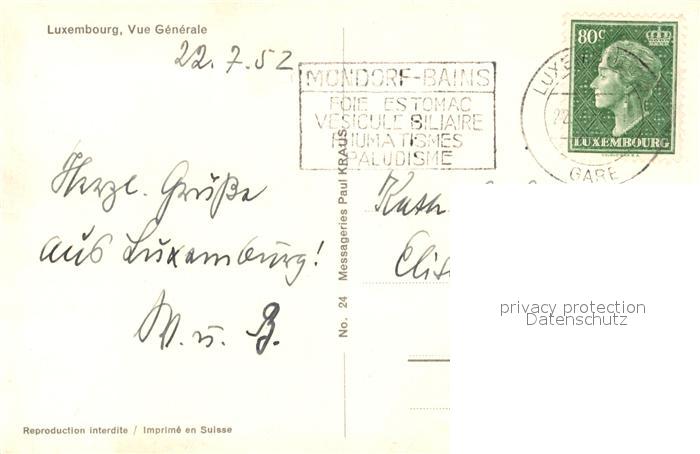 Luxembourg, Vue Générale
22.7.52
MONDORF-BAINS
FOIE ESTOMAC
VESICULE BILIAIRE
RHUMATISMES
PALUDISME
80c
LUXEMBOURG
GARE
Herzl. Grüße
aus Luxemburg!
W. u. B.
Kath.
No. 24 Messageries Paul KRAUS
privacy protection
Datenschutz
Reproduction interdite / Imprimé en Suisse